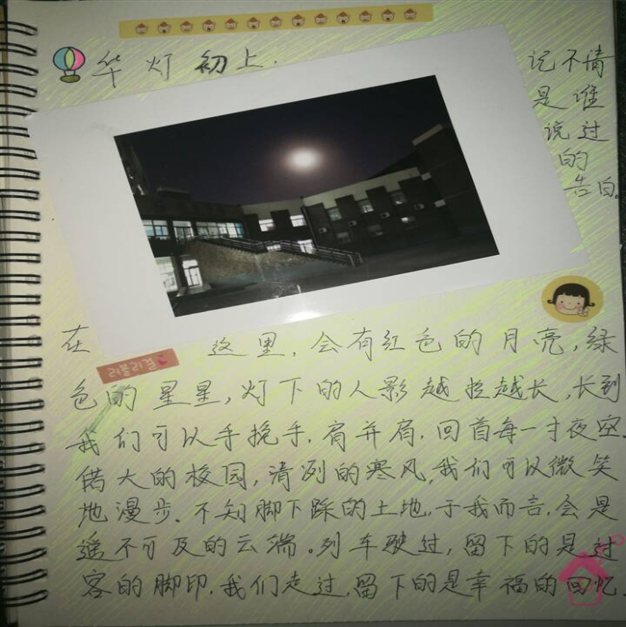 华灯初上.
记不清
是谁
说过
的
告白.
在 这里,会有红色的月亮,绿
色的星星,灯下的人影越拉越长,长到
我们可以手挽手,肩并肩,回首每一寸夜空.
偌大的校园,清冽的寒风,我们可以微笑
地漫步.不知脚下踩的土地,于我而言,会是
遥不可及的云端。列车驶过,留下的是过
客的脚印,我们走过,留下的是幸福的回忆.